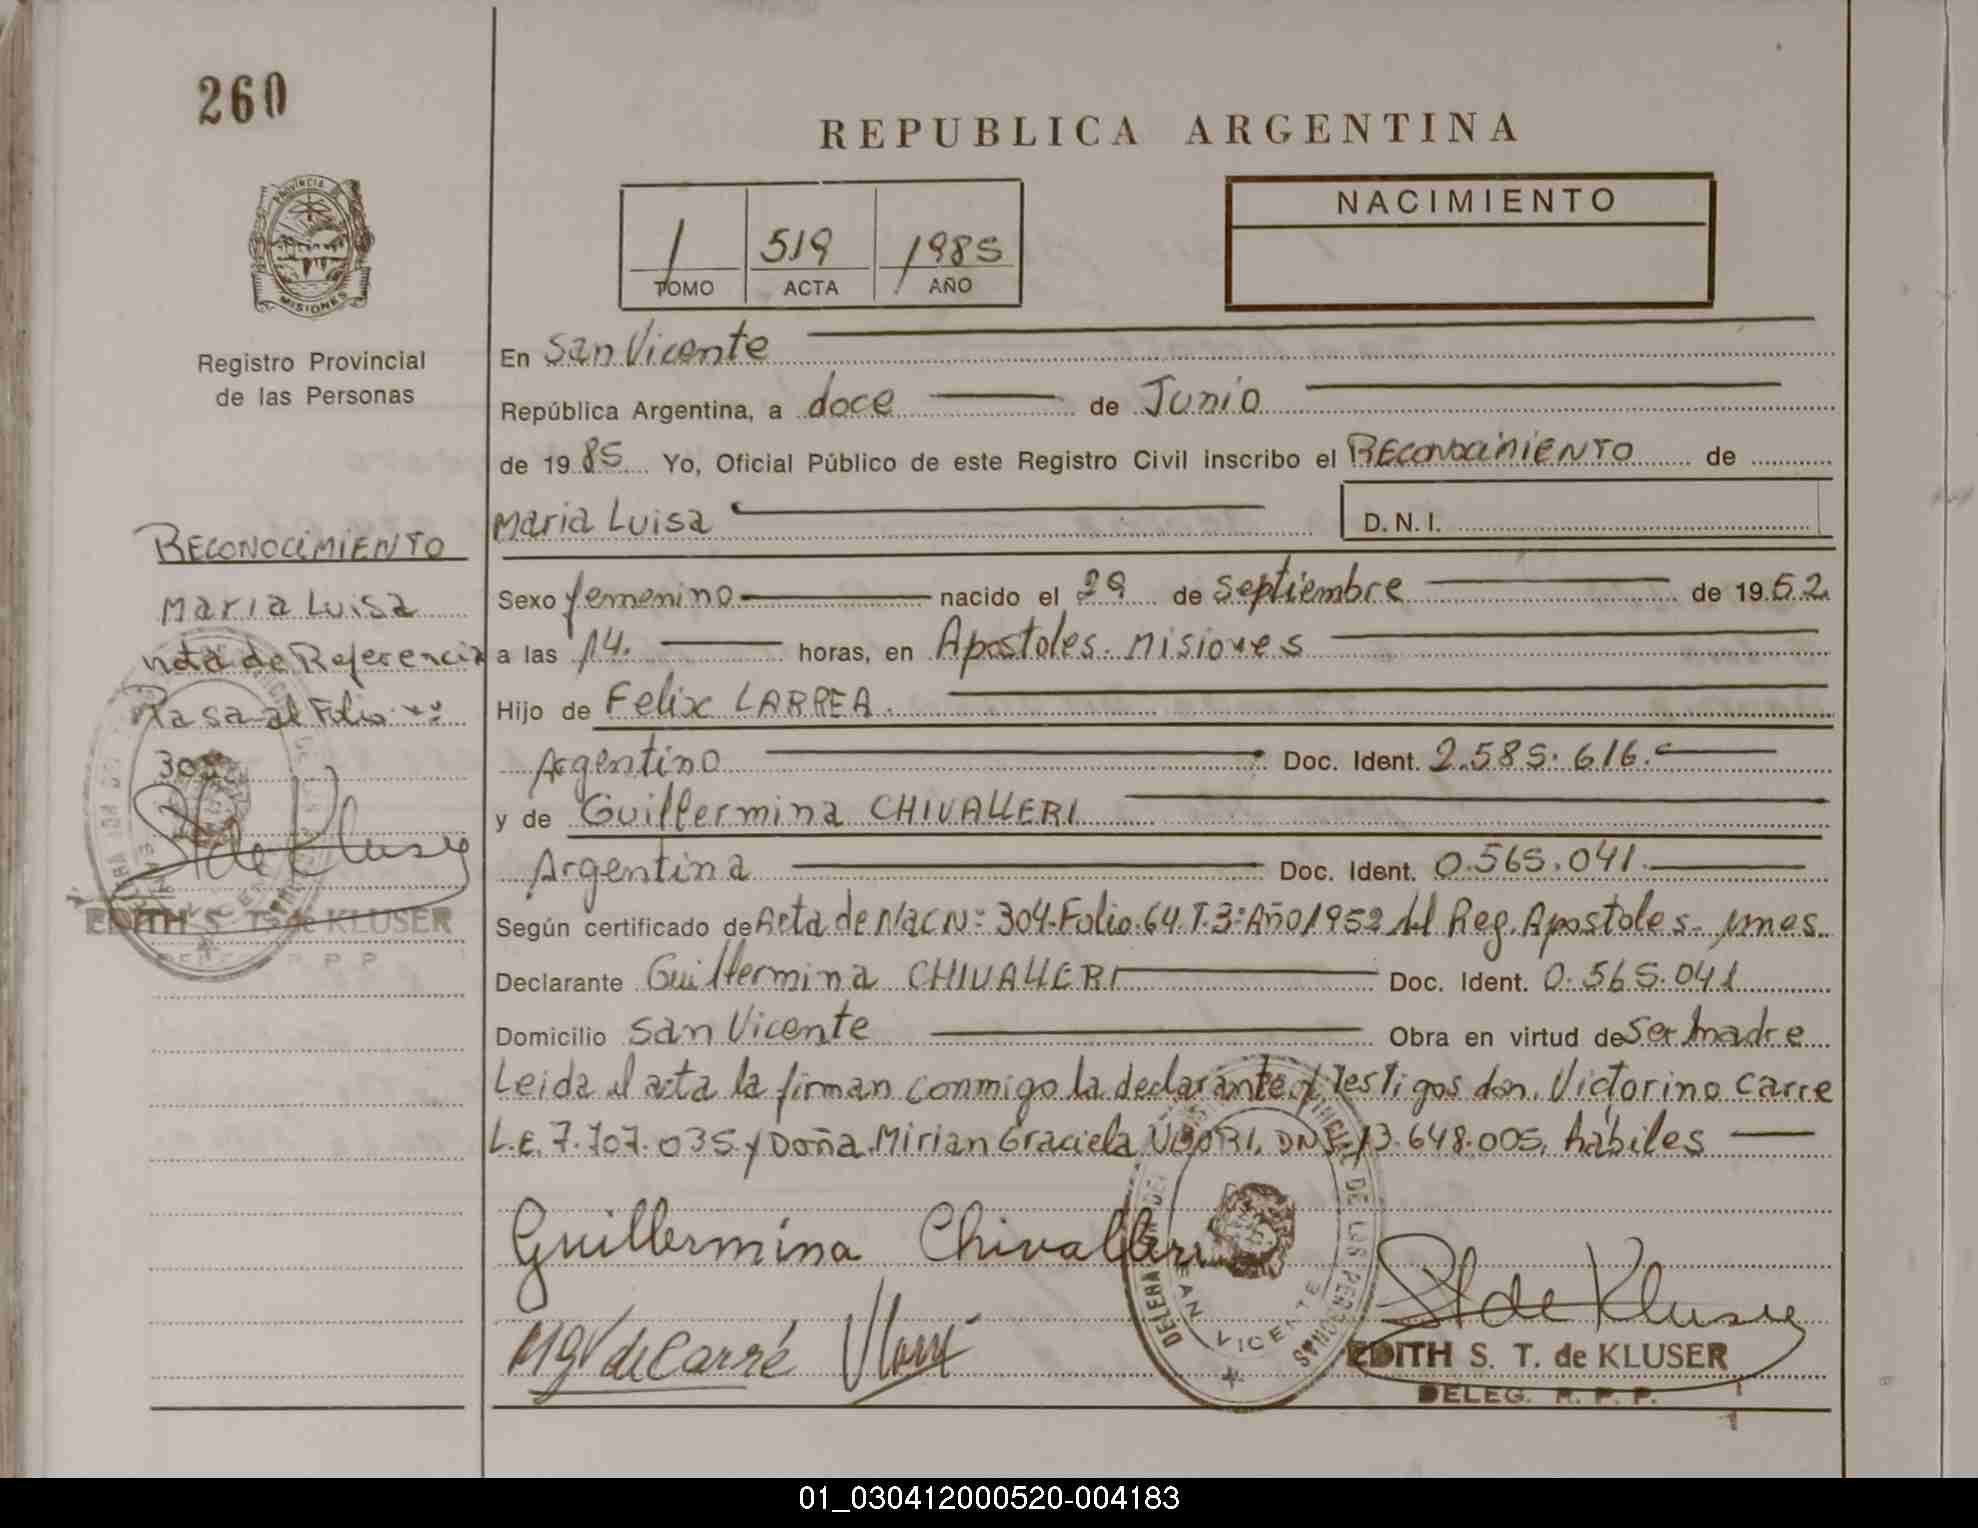 260
REPUBLICA ARGENTINA
NACIMIENTO
1 519 1985
TOMO ACTA AÑO
PROVINCIA
MISIONES
Registro Provincial
de las Personas
En San Vicente
República Argentina, a doce de Junio
de 1985 Yo, Oficial Público de este Registro Civil inscribo el RECONOCIMIENTO de
Maria Luisa D. N. I.
Sexo femenino nacido el 29 de septiembre de 1952
a las 14. horas, en Apostoles. Misiones
Hijo de Felix LARREA.
Argentino Doc. Ident. 2.585.616.
y de Guillermina CHIVALLERI
Argentina Doc. Ident. 0.565.041.
Según certificado de Acta de Nac Nº 304. Folio. 64. T. 3º Año 1952 del Reg. Apostoles. mnes.
Declarante Guillermina CHIVALLERI Doc. Ident. 0.565.041
Domicilio San Vicente Obra en virtud de Ser Madre
Leida el acta la firman conmigo la declarante y testigos don. Victorino Carre
L.E. 7.707.035. y Doña. Mirian Graciela DNI. 13.648.005. hábiles
Guillermina Chivalleri
MGV de Carré
St de Kluser
EDITH S. T. de KLUSER
DELEG. R. P. P.
SAN VICENTE
RECONOCIMIENTO
Maria Luisa
nota de Referencia
Pasa al Folio nº
St de Kluser
EDITH S. T. de KLUSER
DELEG. R. P. P.
01_030412000520-004183